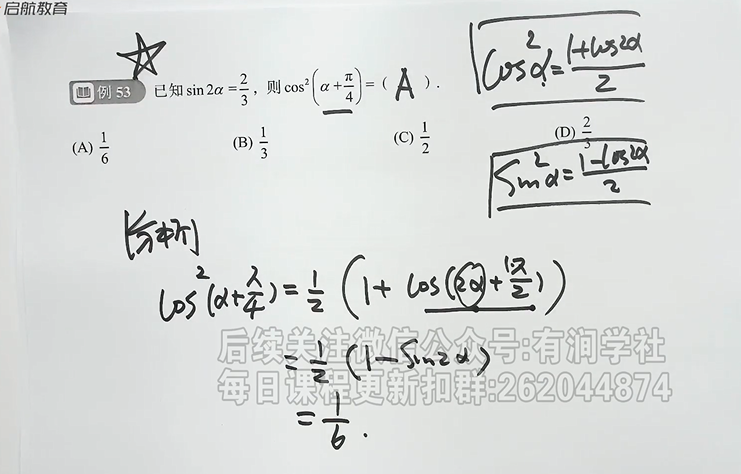 启航教育
例 53 已知 sin 2α = 2/3，则 cos²(α + π/4) = ( A ).
(A) 1/6 (B) 1/3 (C) 1/2 (D) 2/3
cos²α = (1+cos2α)/2
sin²α = (1-cos2α)/2
[分析]
cos²(α + π/4) = 1/2 (1 + cos(2α + π/2))
= 1/2 (1 - sin2α)
= 1/6 .
后续关注微信公众号:有润学社
每日课程更新扣群:262044874